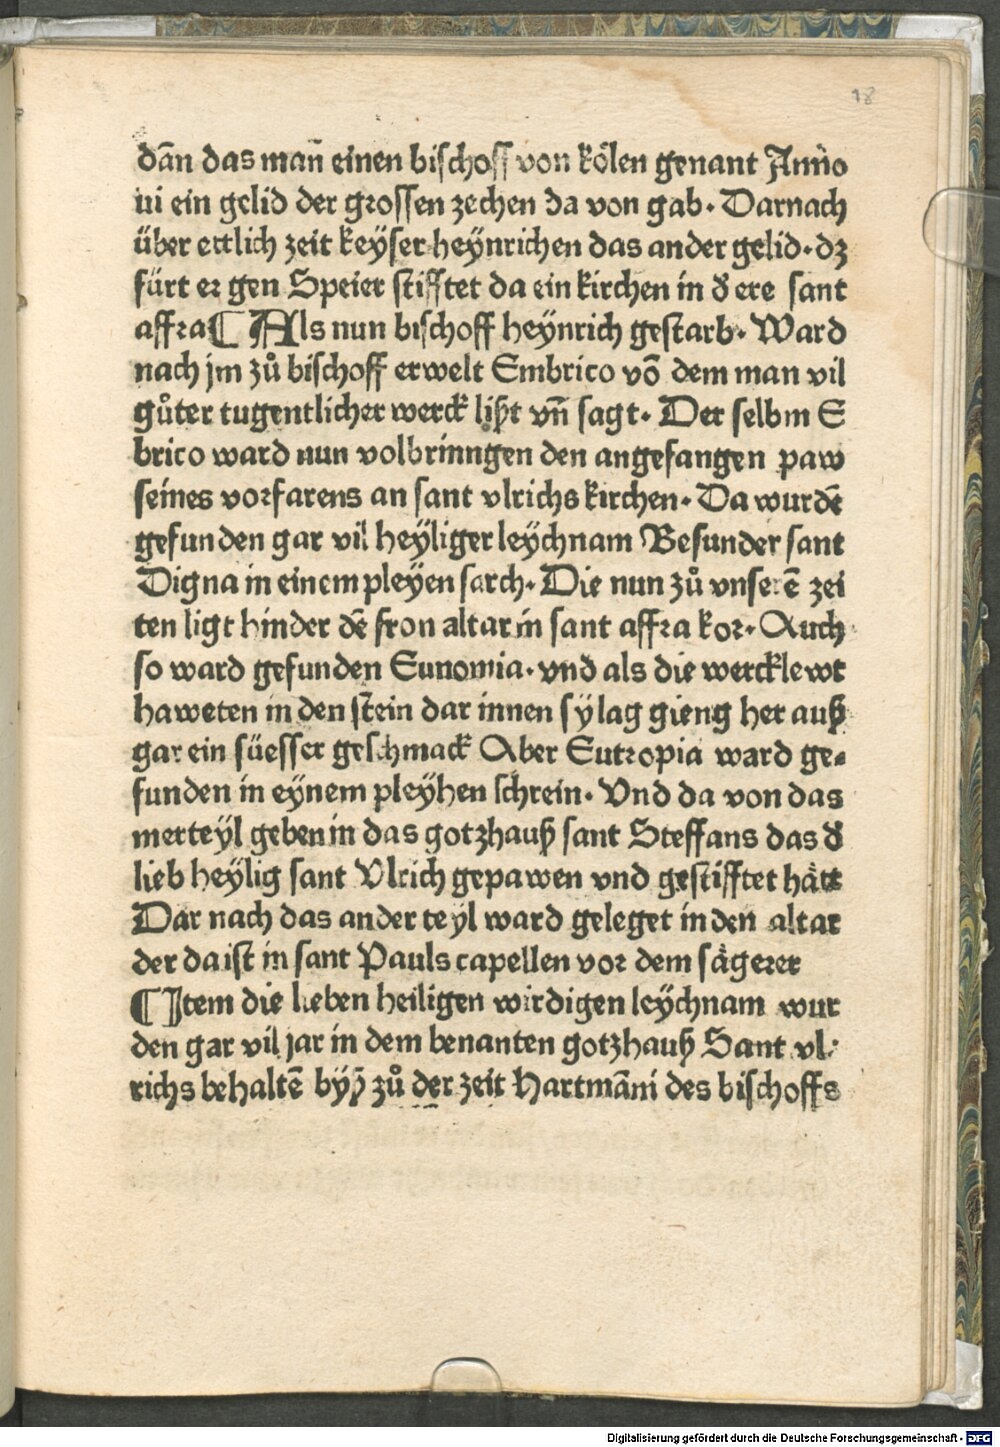 18
dãn das mañ einen bischoff von kölen genant Anño
iii ein gelid der grossen zechen da von gab. Darnach
über ettlich zeit keÿser heÿnrichen das ander gelid. dz
fürt er gen Speier stifftet da ein kirchen in đ ere sant
affra ¶ Als nun bischoff heÿnrich gestarb. Ward
nach jm zů bischoff erwelt Embrico võ dem man vil
gůter tugentlicher werck lißt vñ sagt. Der selb m E
brico ward nun volbrinngen den angefangen paw
seines vorfarens an sant vlrichs kirchen. Da wurdẽ
gefunden gar vil heÿliger leÿchnam Besunder sant
Digna in einem pleÿen sarch. Die nun zů vnserẽ zei
ten ligt hinder dẽ fron altar in sant affra kor. Auch
so ward gefunden Eunomia. vnd als die wercklewt
haweten in den stein dar innen sÿ lag gieng her auß
gar ein süesser geschmack Aber Eutropia ward ge-
funden in eÿnem pleÿhen schrein. Vnd da von das
merteÿl geben in das gotzhauß sant Steffans das đ
lieb heÿlig sant Vlrich gepawen vnd gestifftet hått
Dar nach das ander teÿl ward geleget in den altar
der da ist in sant Pauls capellen vor dem sågerer
¶ Item die lieben heiligen wirdigen leÿchnam wur
den gar vil jar in dem benanten gotzhauß Sant vl-
richs behaltẽ bÿß zů der zeit Hartmãni des bischoffs
Digitalisierung gefördert durch die Deutsche Forschungsgemeinschaft - DFG